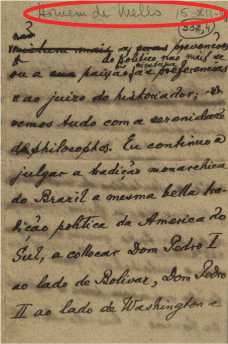 Homem de Mello 15-XII-
332,4
não
as suas prevenções
do politico não mais se
ou a sua paixão e preferencias
e ao juizo do historiador;
vemos tudo com a serenidade
de philosopho. Eu continuo a
julgar a tradição monarchica
do Brazil a mesma bella tra-
dição politica da America do
Sul, a collocar Dom Pedro I
ao lado de Bolivar, Dom Pedro
II ao lado de Washington e